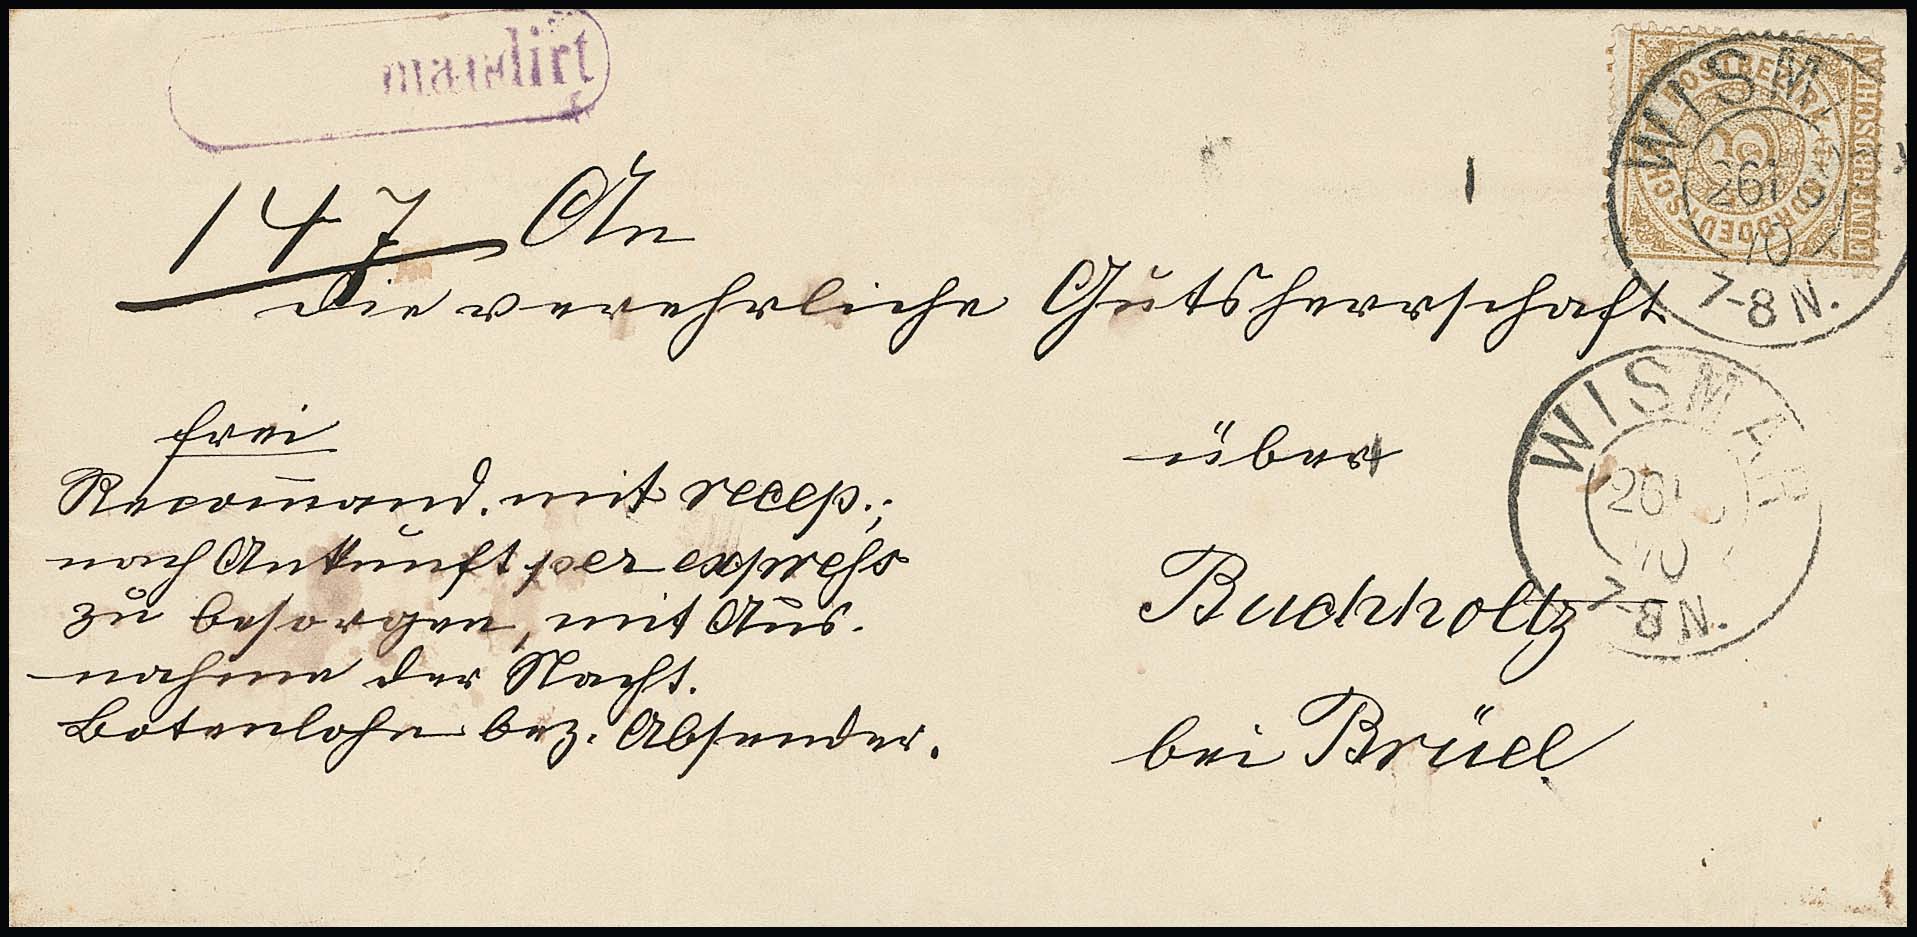 mandirt
147 An
die verehrliche Gutsherrschaft
frei
Recommand. mit recep.;
nach Ankunft per express
zu besorgen, mit Aus-
nahme der Nacht.
Botenlohn bez. Absender.
über
Buchholtz
bei Brüel.
NORDDEUTSCHER POSTBEZIRK
5
FÜNF GROSCHEN
WISMAR
26
70
7-8 N.
WISMAR
26
70
7-8 N.